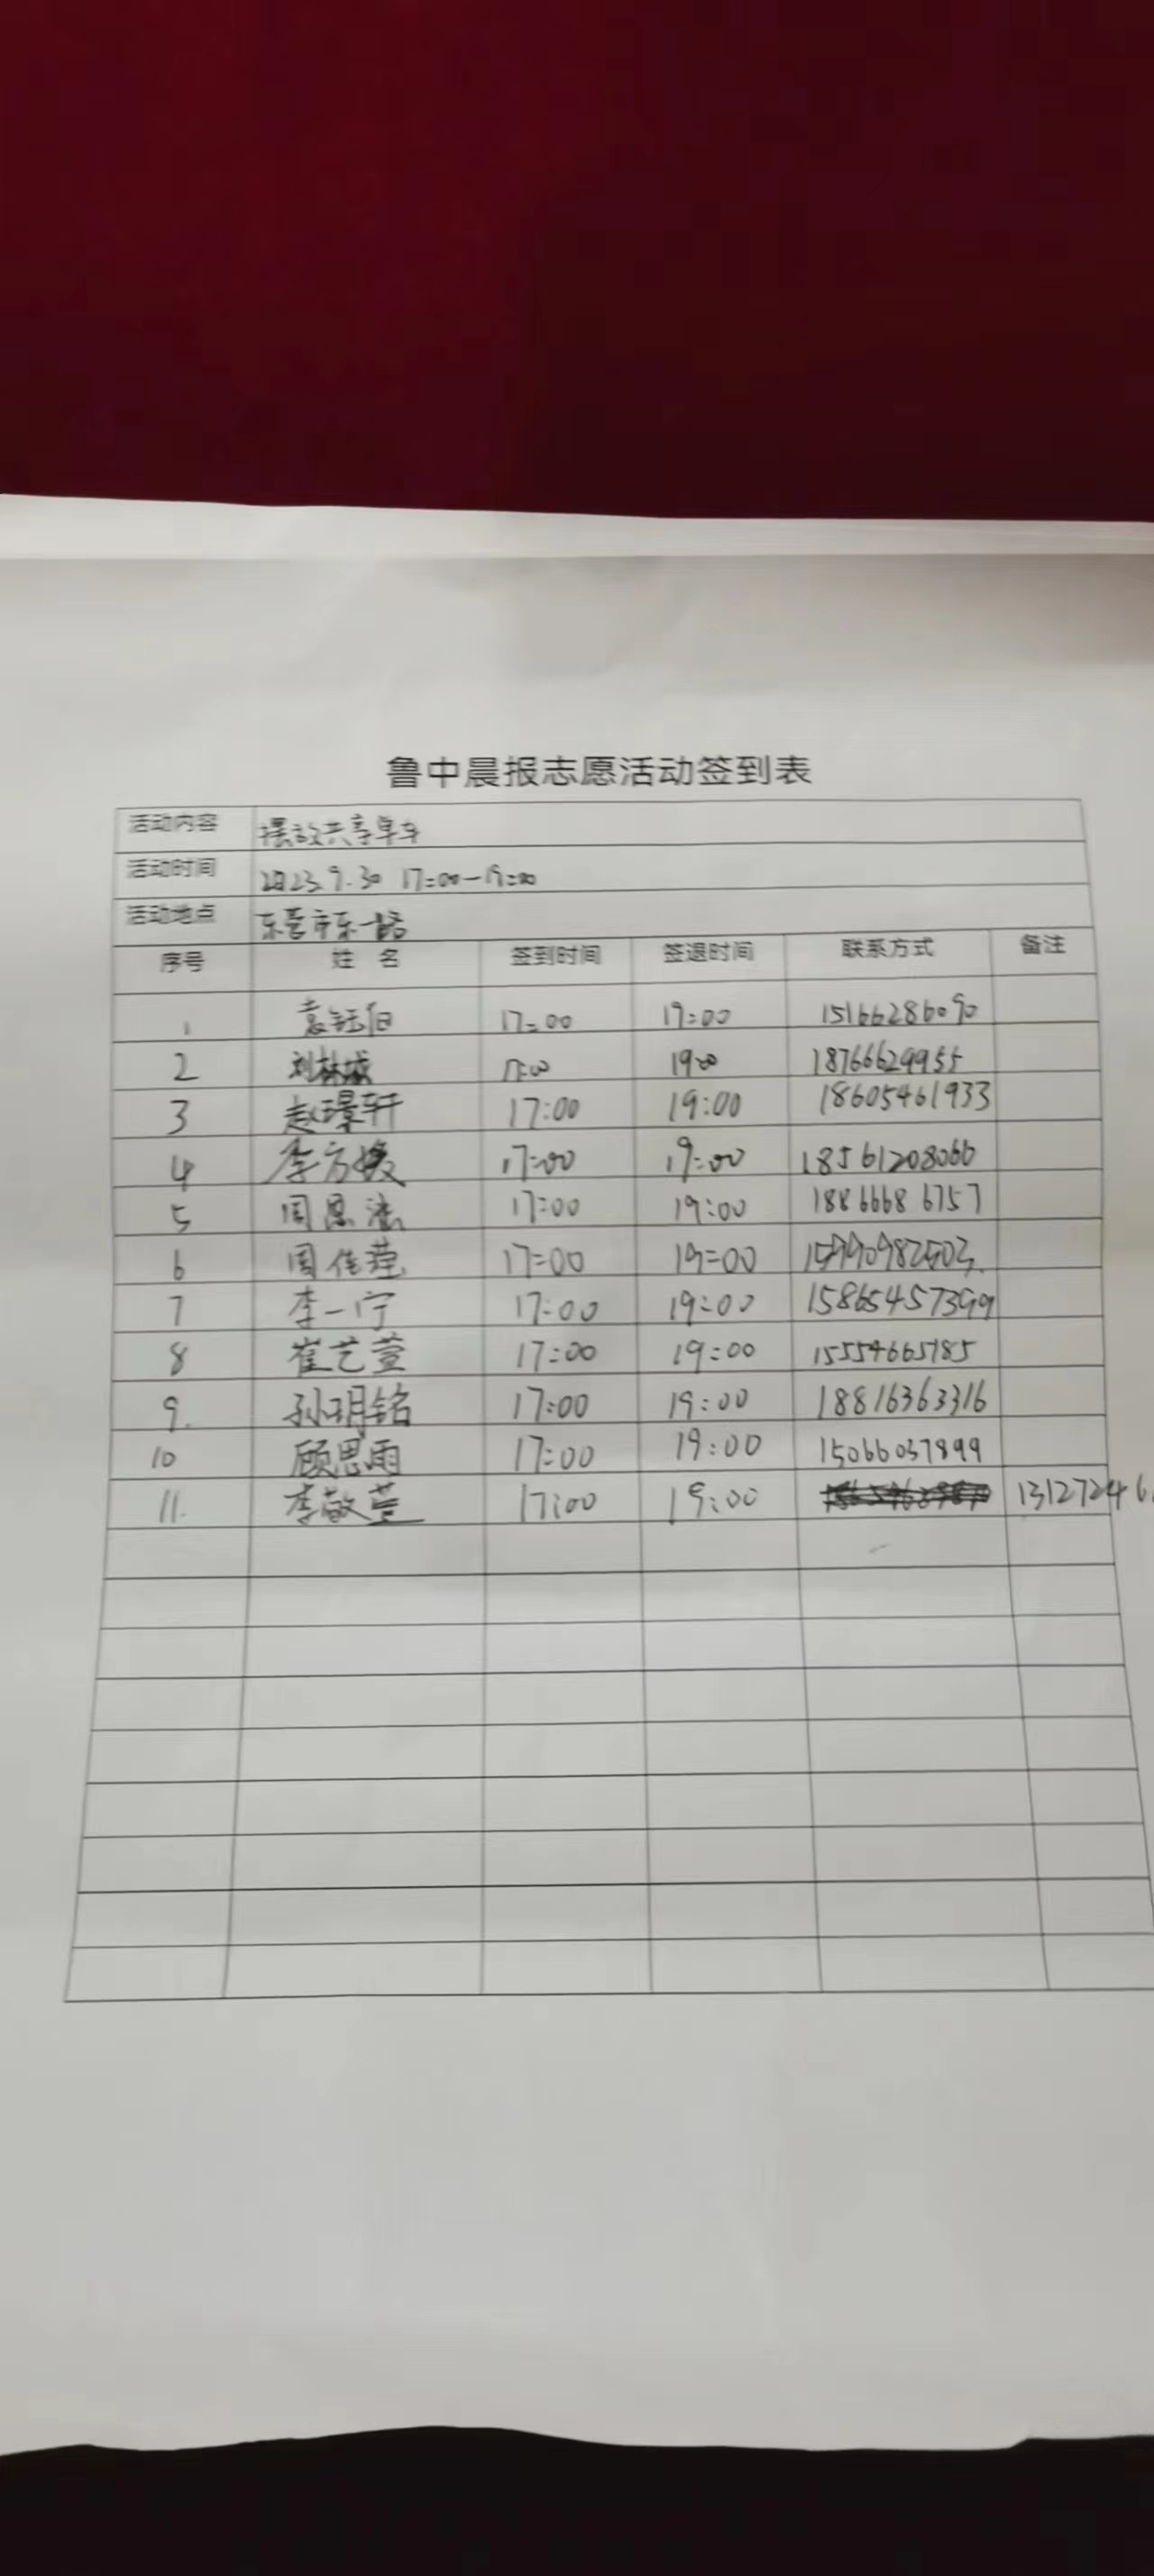 鲁中晨报志愿活动签到表
活动内容 摆放共享单车
活动时间 2023.9.30 17:00-19:00
活动地点 东营市东一路
序号 姓 名 签到时间 签退时间 联系方式 备注
1 袁钰伯 17:00 19:00 15166286090
2 刘林城 17:00 19:00 18766629955
3 赵璟轩 17:00 19:00 18605461933
4 李方媛 17:00 19:00 18561208066
5 周恩 17:00 19:00 18866686757
6 周佳莹 17:00 19:00
7 李一宁 17:00 19:00 15865457399
8 崔艺萱 17:00 19:00 15554665785
9. 孙玥铭 17:00 19:00 18816363316
10 顾思雨 17:00 19:00 15066037899
11. 李敬萱 17:00 19:00 13127246